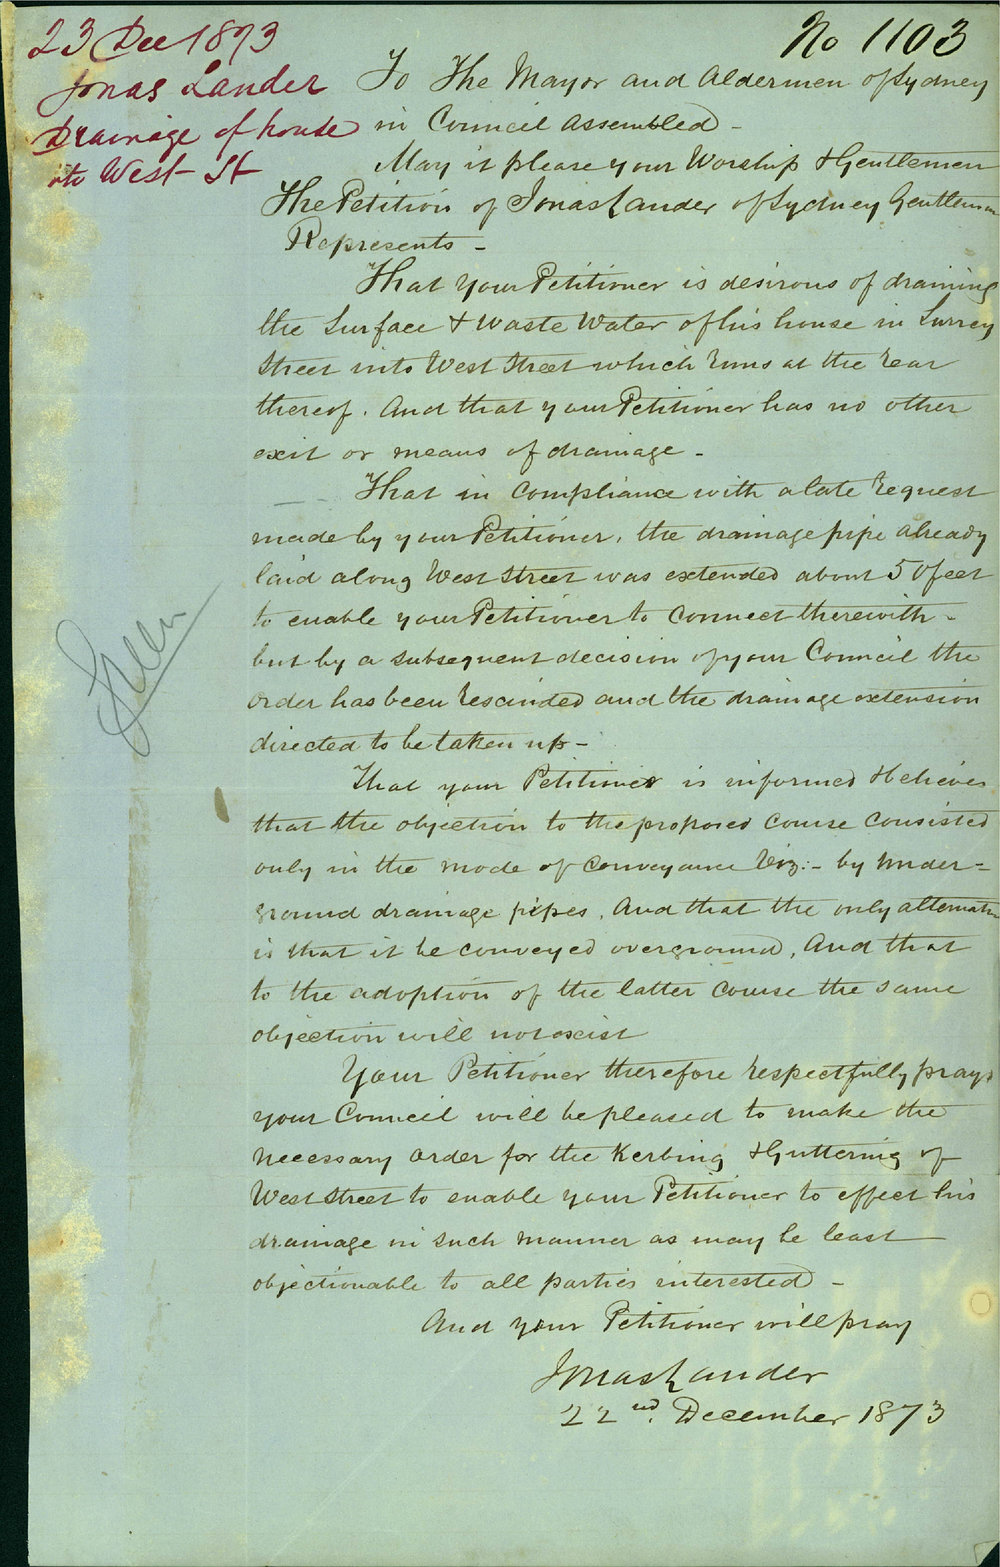 23 Dec 1873
Jonas Lander
Drainage of house
into West St
No 1103
To The Mayor and Aldermen of Sydney
in Council Assembled -
May it please your Worship & Gentlemen
The Petition of Jonas Lander of Sydney Gentleman
Represents -
That your Petitioner is desirous of draining
the Surface & Waste Water of his house in Surrey
Street into West Street which runs at the rear
thereof. And that your Petitioner has no other
exit or means of drainage -
That in compliance with a late request
made by your Petitioner, the drainage pipe already
laid along West Street was extended about 50 feet
to enable your Petitioner to connect therewith -
but by a subsequent decision of your Council the
order has been rescinded and the drainage extension
directed to be taken up -
That your Petitioner is informed & believes
that the objection to the proposed course consisted
only in the mode of conveyance Viz:- by under-
ground drainage pipes, And that the only alternative
is that it be conveyed overground, And that
to the adoption of the latter course the same
objection will not exist
Your Petitioner therefore respectfully prays
your Council will be pleased to make the
necessary order for the Kerbing & Guttering of
West Street to enable your Petitioner to effect his
drainage in such manner as may be least
objectionable to all parties interested -
And your Petitioner will pray
Jonas Lander
22nd. December 1873